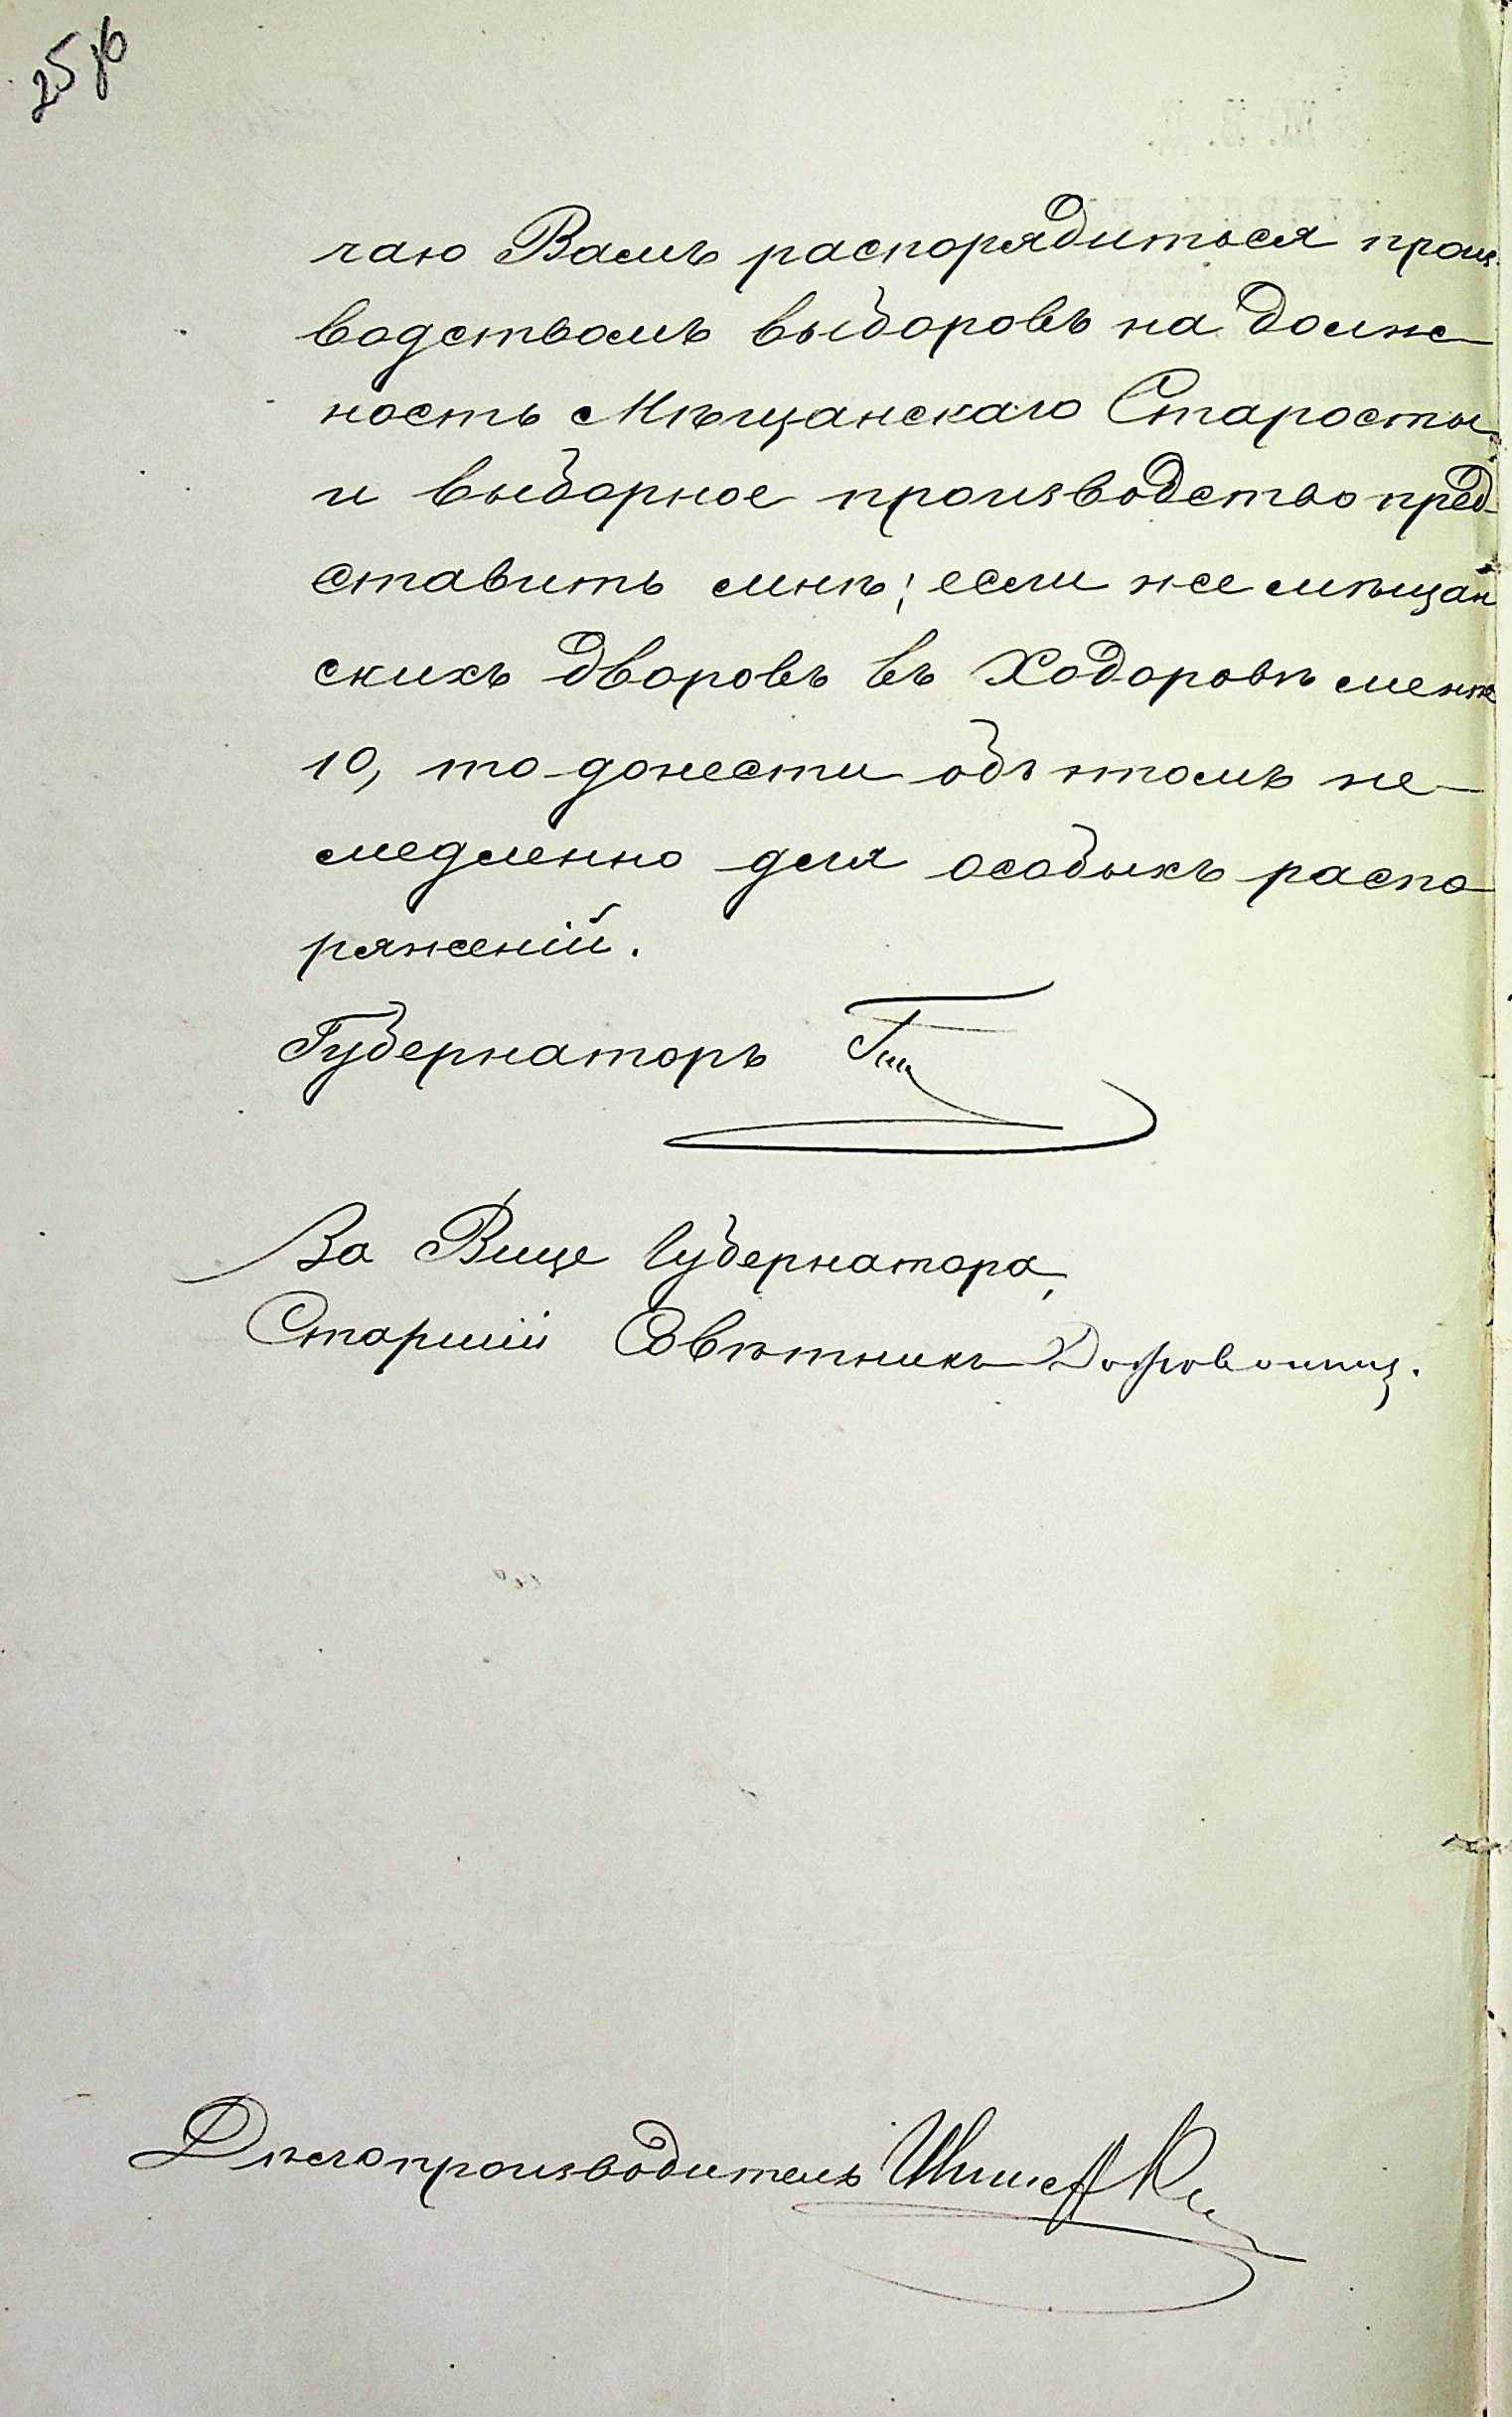 25 об
чаю Вамъ распорядиться произ-
водствомъ выборовъ на долж-
ность Мѣщанскаго Старосты
и выборное производство пред-
ставить мнѣ; если же мѣщан
скихъ дворовъ въ Ходоровѣ менѣе
10, то донести объ этомъ не-
медленно для особыхъ распо-
ряженій.
Губернаторъ
За Вице Губернатора,
Старшій Совѣтникъ
Дѣлопроизводитель